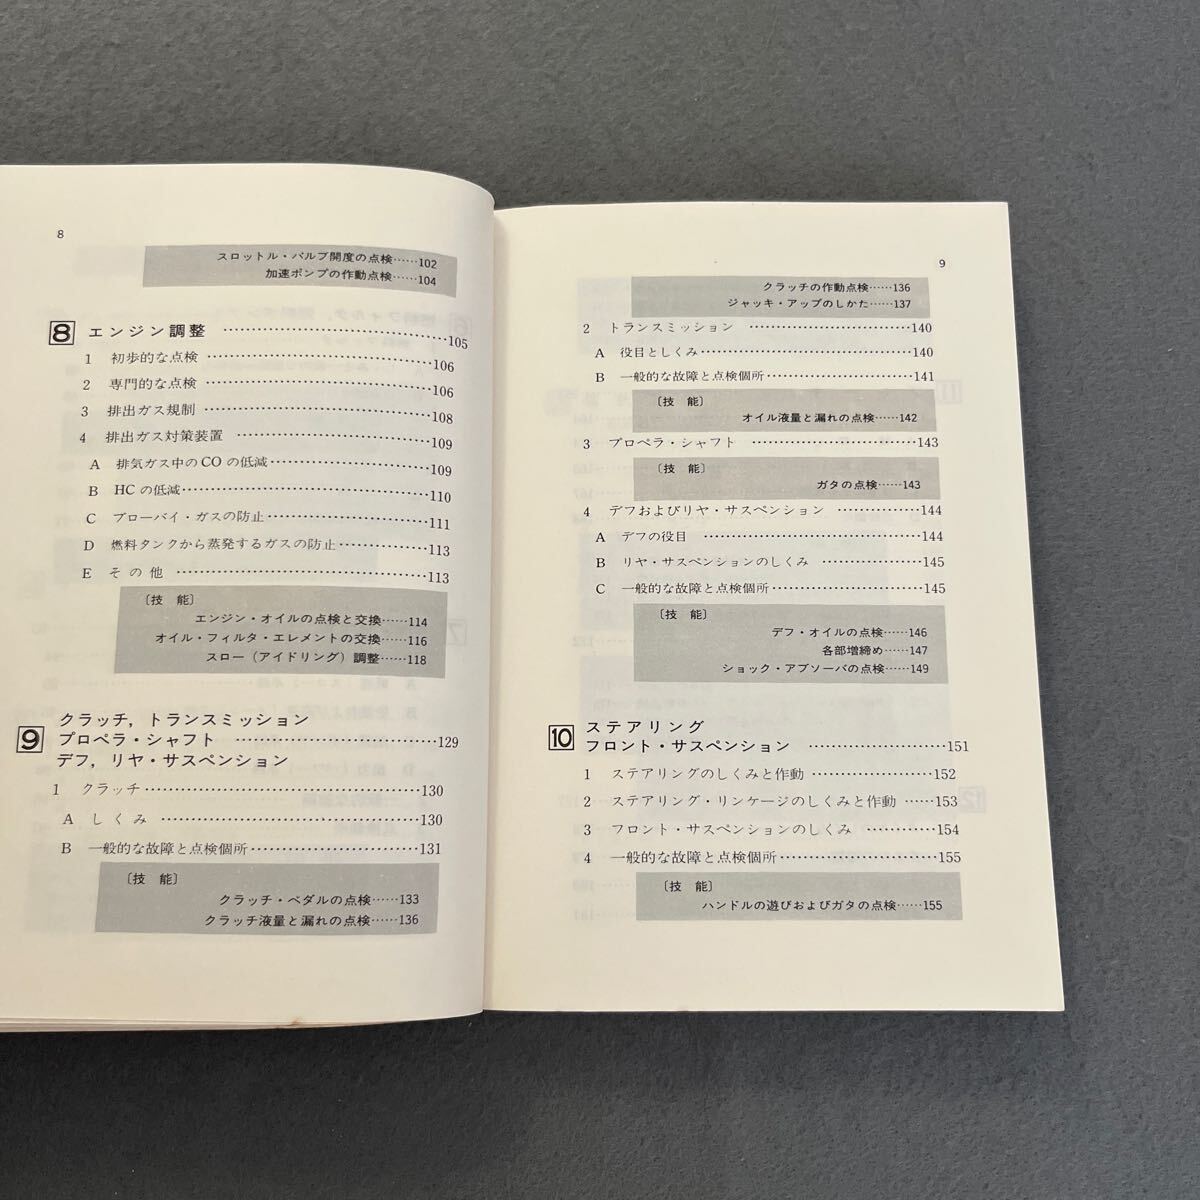 8
スロットル・バルブ開度の点検……102
加速ポンプの作動点検……104
8 エンジン調整 ……………………………105
1 初歩的な点検 ……………………………106
2 専門的な点検 ……………………………106
3 排出ガス規制 ……………………………108
4 排出ガス対策装置 ………………………109
A 排気ガス中のCOの低減…………………109
B HCの低減…………………………………110
C ブローバイ・ガスの防止…………………111
D 燃料タンクから蒸発するガスの防止………113
E その他 ……………………………………113
〔技 能〕
エンジン・オイルの点検と交換……114
オイル・フィルタ・エレメントの交換……116
スロー(アイドリング)調整……118
9 クラッチ,トランスミッション
プロペラ・シャフト ……………………………129
デフ,リヤ・サスペンション
1 クラッチ……………………………………130
A しくみ ……………………………………130
B 一般的な故障と点検個所…………………131
〔技 能〕
クラッチ・ペダルの点検……133
クラッチ液量と漏れの点検……136
9
クラッチの作動点検……136
ジャッキ・アップのしかた……137
2 トランスミッション ………………………140
A 役目としくみ………………………………140
B 一般的な故障と点検個所…………………141
〔技 能〕
オイル液量と漏れの点検……142
3 プロペラ・シャフト ………………………143
〔技 能〕
ガタの点検……143
4 デフおよびリヤ・サスペンション …………144
A デフの役目 ………………………………144
B リヤ・サスペンションのしくみ ……………145
C 一般的な故障と点検個所…………………145
〔技 能〕
デフ・オイルの点検……146
各部増締め……147
ショック・アブソーバの点検……149
10 ステアリング
フロント・サスペンション …………………151
1 ステアリングのしくみと作動 ………………152
2 ステアリング・リンケージのしくみと作動 ……153
3 フロント・サスペンションのしくみ …………154
4 一般的な故障と点検個所……………………155
〔技 能〕
ハンドルの遊びおよびガタの点検……155